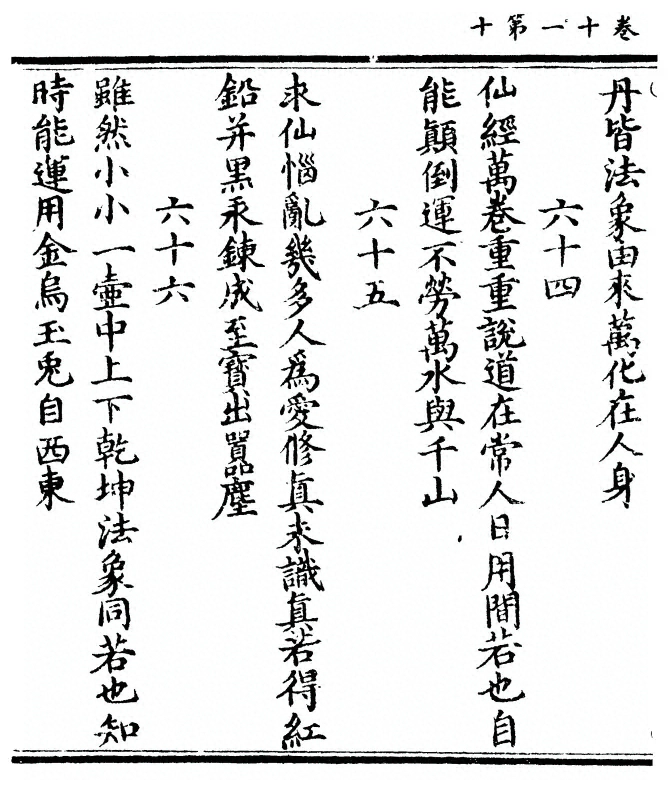 卷十一第十
丹皆法象由來萬化在人身
六十四
仙經萬卷重重說道在常人日用間若也自
能顛倒運不勞萬水與千山
六十五
求仙惱亂幾多人爲愛修眞未識眞若得紅
鉛并黑汞鍊成至寶出囂塵
六十六
雖然小小一壷中上下乾坤法象同若也知
時能運用金烏玉兎自西東